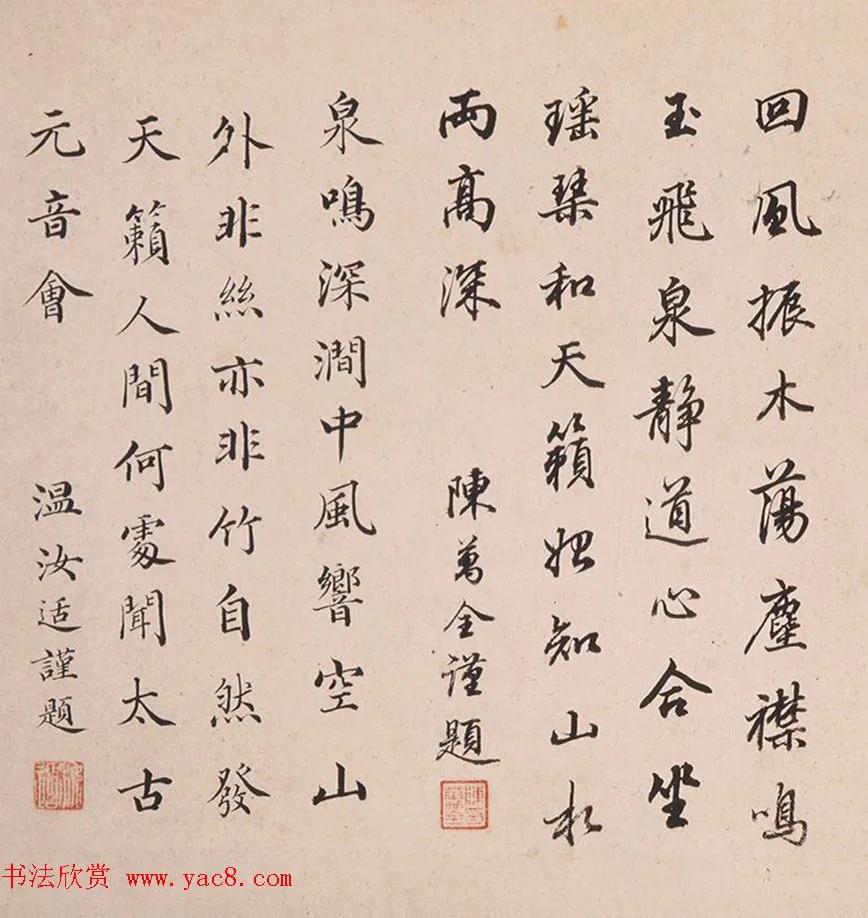 回風振木蕩塵襟鳴
玉飛泉静道心合坐
瑶琴和天籟始知山水
兩高深
陳萬全謹題
泉鳴深澗中風響空山
外非絲亦非竹自然發
天籟人間何處聞太古
元音會
温汝适謹題
书法欣赏 www.yac8.com